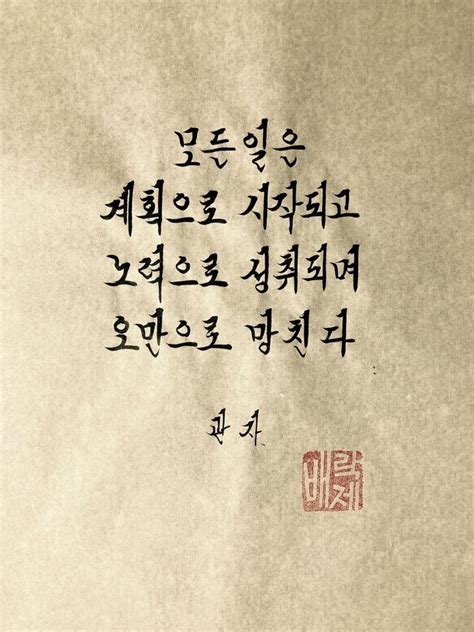 모든 일은
계획으로 시작되고
노력으로 성취되며
오만으로 망친다
관자